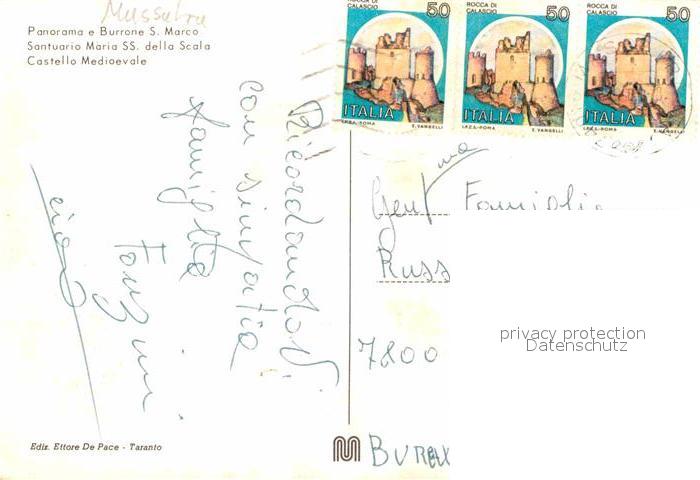 Mussutra
Panorama e Burrone S. Marco
Santuario Maria SS. della Scala
Castello Medioevale
ROCCA DI
CALASCIO
50
ITALIA
I.P.Z.S.-ROMA E. VANGELLI
ROCCA DI
CALASCIO
50
ITALIA
I.P.Z.S.-ROMA E. VANGELLI
ROCCA DI
CALASCIO
50
ITALIA
I.P.Z.S.-ROMA E. VANGELLI
Ricordandovi
con simpatia
famiglia
Fonzini
ciao
Gent ma Famiglia
Russ
7800
privacy protection
Datenschutz
Ediz. Ettore De Pace - Taranto